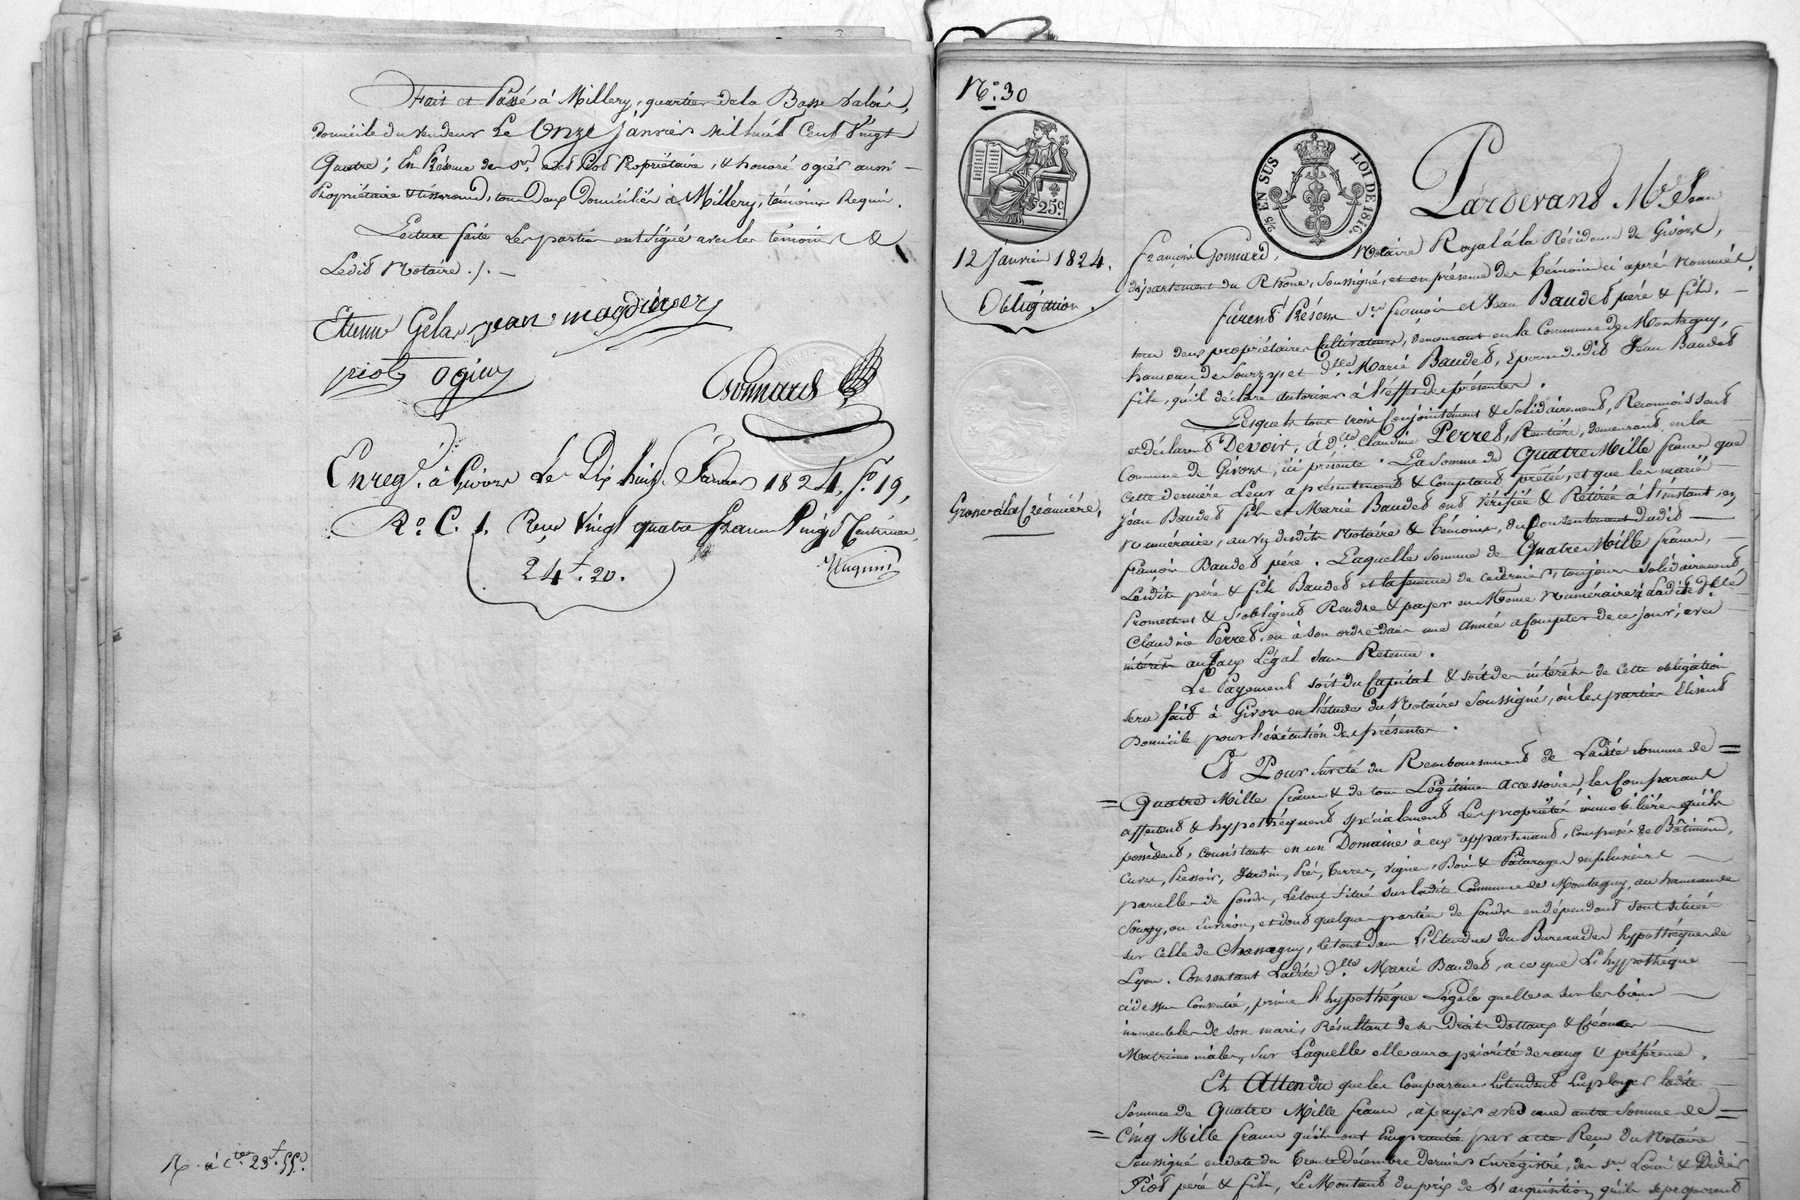 Fait et Passé à Millery, quartier de la Basse
domicile du vendeur Le Onze Janvier Mil huit Cent Vingt
Quatre; En Présence de Sr. Piot Propriétaire, & honoré ogier aussi
Propriétaire & tisserand, tous Deux Domiciliés à Millery, témoins Requis.
Lecture faite Les parties ont signé avec les témoins &
Ledit Notaire ./. —
Etienne Gela jean
piot ogier
Gonnard
Enreg.é à Givors Le Dix huit Janvier 1824, f.o 19,
R.o C. 1. Reçu Vingt quatre francs Vingt Centimes
24f. 20.
N.o 30
25c
25 EN SUS LOI DE 1816.
12 Janvier 1824.
Obligation
Grosse à la Créancière,
Pardevant Me. Jean
François Gonnard, Notaire Royal à la Résidence de Givors,
département du Rhône, soussigné, et en présence des témoins ci après nommés.
furent Présens Srs. françois et Jean Baudet père & fils,
tous deux propriétaires Cultivateurs, demeurant en la Commune de Montagny,
hameau de Sourzy et dlle. Marie Baudet, épouse dudit Jean Baudet
fils, qu'il déclare autoriser à l'effet des présentes.
Lesquels tous trois Conjointement & Solidairement, Reconnoissent
et déclarent Devoir, à dlle. Claudine Perret, Rentière, demeurant en la
Commune de Givors, ici présente. La Somme de Quatre Mille francs que
Cette dernière Leur a présentement & Comptant prêtée, et que les mariés
Jean Baudet fils et Marie Baudet ont vérifiée & Retirée à l'instant en
Numéraire, au vu desdits Notaire & témoins, du Consentement dudit
françois Baudet père. Laquelle Somme de Quatre Mille francs,
Lesdits père & fils Baudet et la femme de ce dernier, toujours solidairement,
Promettent & s'obligent Rendre & payer en Même Numéraire à Ladite dlle.
Claudine Perret, ou à son ordre dans une Année à Compter de ce jour, avec
intérêts au Taux Légal sans Retenue.
Le Payement soit du Capital & soit des intérêts de cette obligation
sera fait à Givors en l'étude du Notaire Soussigné, où les parties Elisent
Domicile pour l'exécution des présentes.
Et Pour sureté du Remboursement de Ladite Somme de =
= Quatre Mille francs & de tous Légitimes accessoires les Comparants
affectent & hypothéquent spécialement Les propriétés immobilières qu'ils
possèdent, consistants en un Domaine à eux appartenant, composé de Bâtiments,
Cuves, Pressoir, Jardin, Prés, Terres, Vignes, Bois & Paturages en plusieurs
parcelles de fonds, Le tout situé sur ladite Commune de Montagny, au hameau de
Sourzy, ou Environ, et dont quelques parties de fonds en dépendant sont situées
sur Celle de Chassagny, le tout dans l'Etendue du Bureau des hypothèques de
Lyon. Consentant Ladite dlle. Marie Baudet, à ce que L'hypothèque
ci dessus Consentie, prime l'hypothèque Légale qu'elle a sur les biens
immeubles de son mari, Résultant de ses Droits Dottaux & Créances
Matrimoniales, sur Laquelle elle aura priorité de rang & préférence.
Et Attendu que les Comparans Entendent Employer ladite
Somme de Quatre Mille francs, à payer avec une autre Somme de =
= Cinq Mille francs qu'ils ont Empruntée par acte Reçu du Notaire
Soussigné en date du Trente Décembre dernier Enregistré, des srs. Louis & Didier
Piot père & fils, Le Montant du prix de l'acquisition qu'ils se proposent